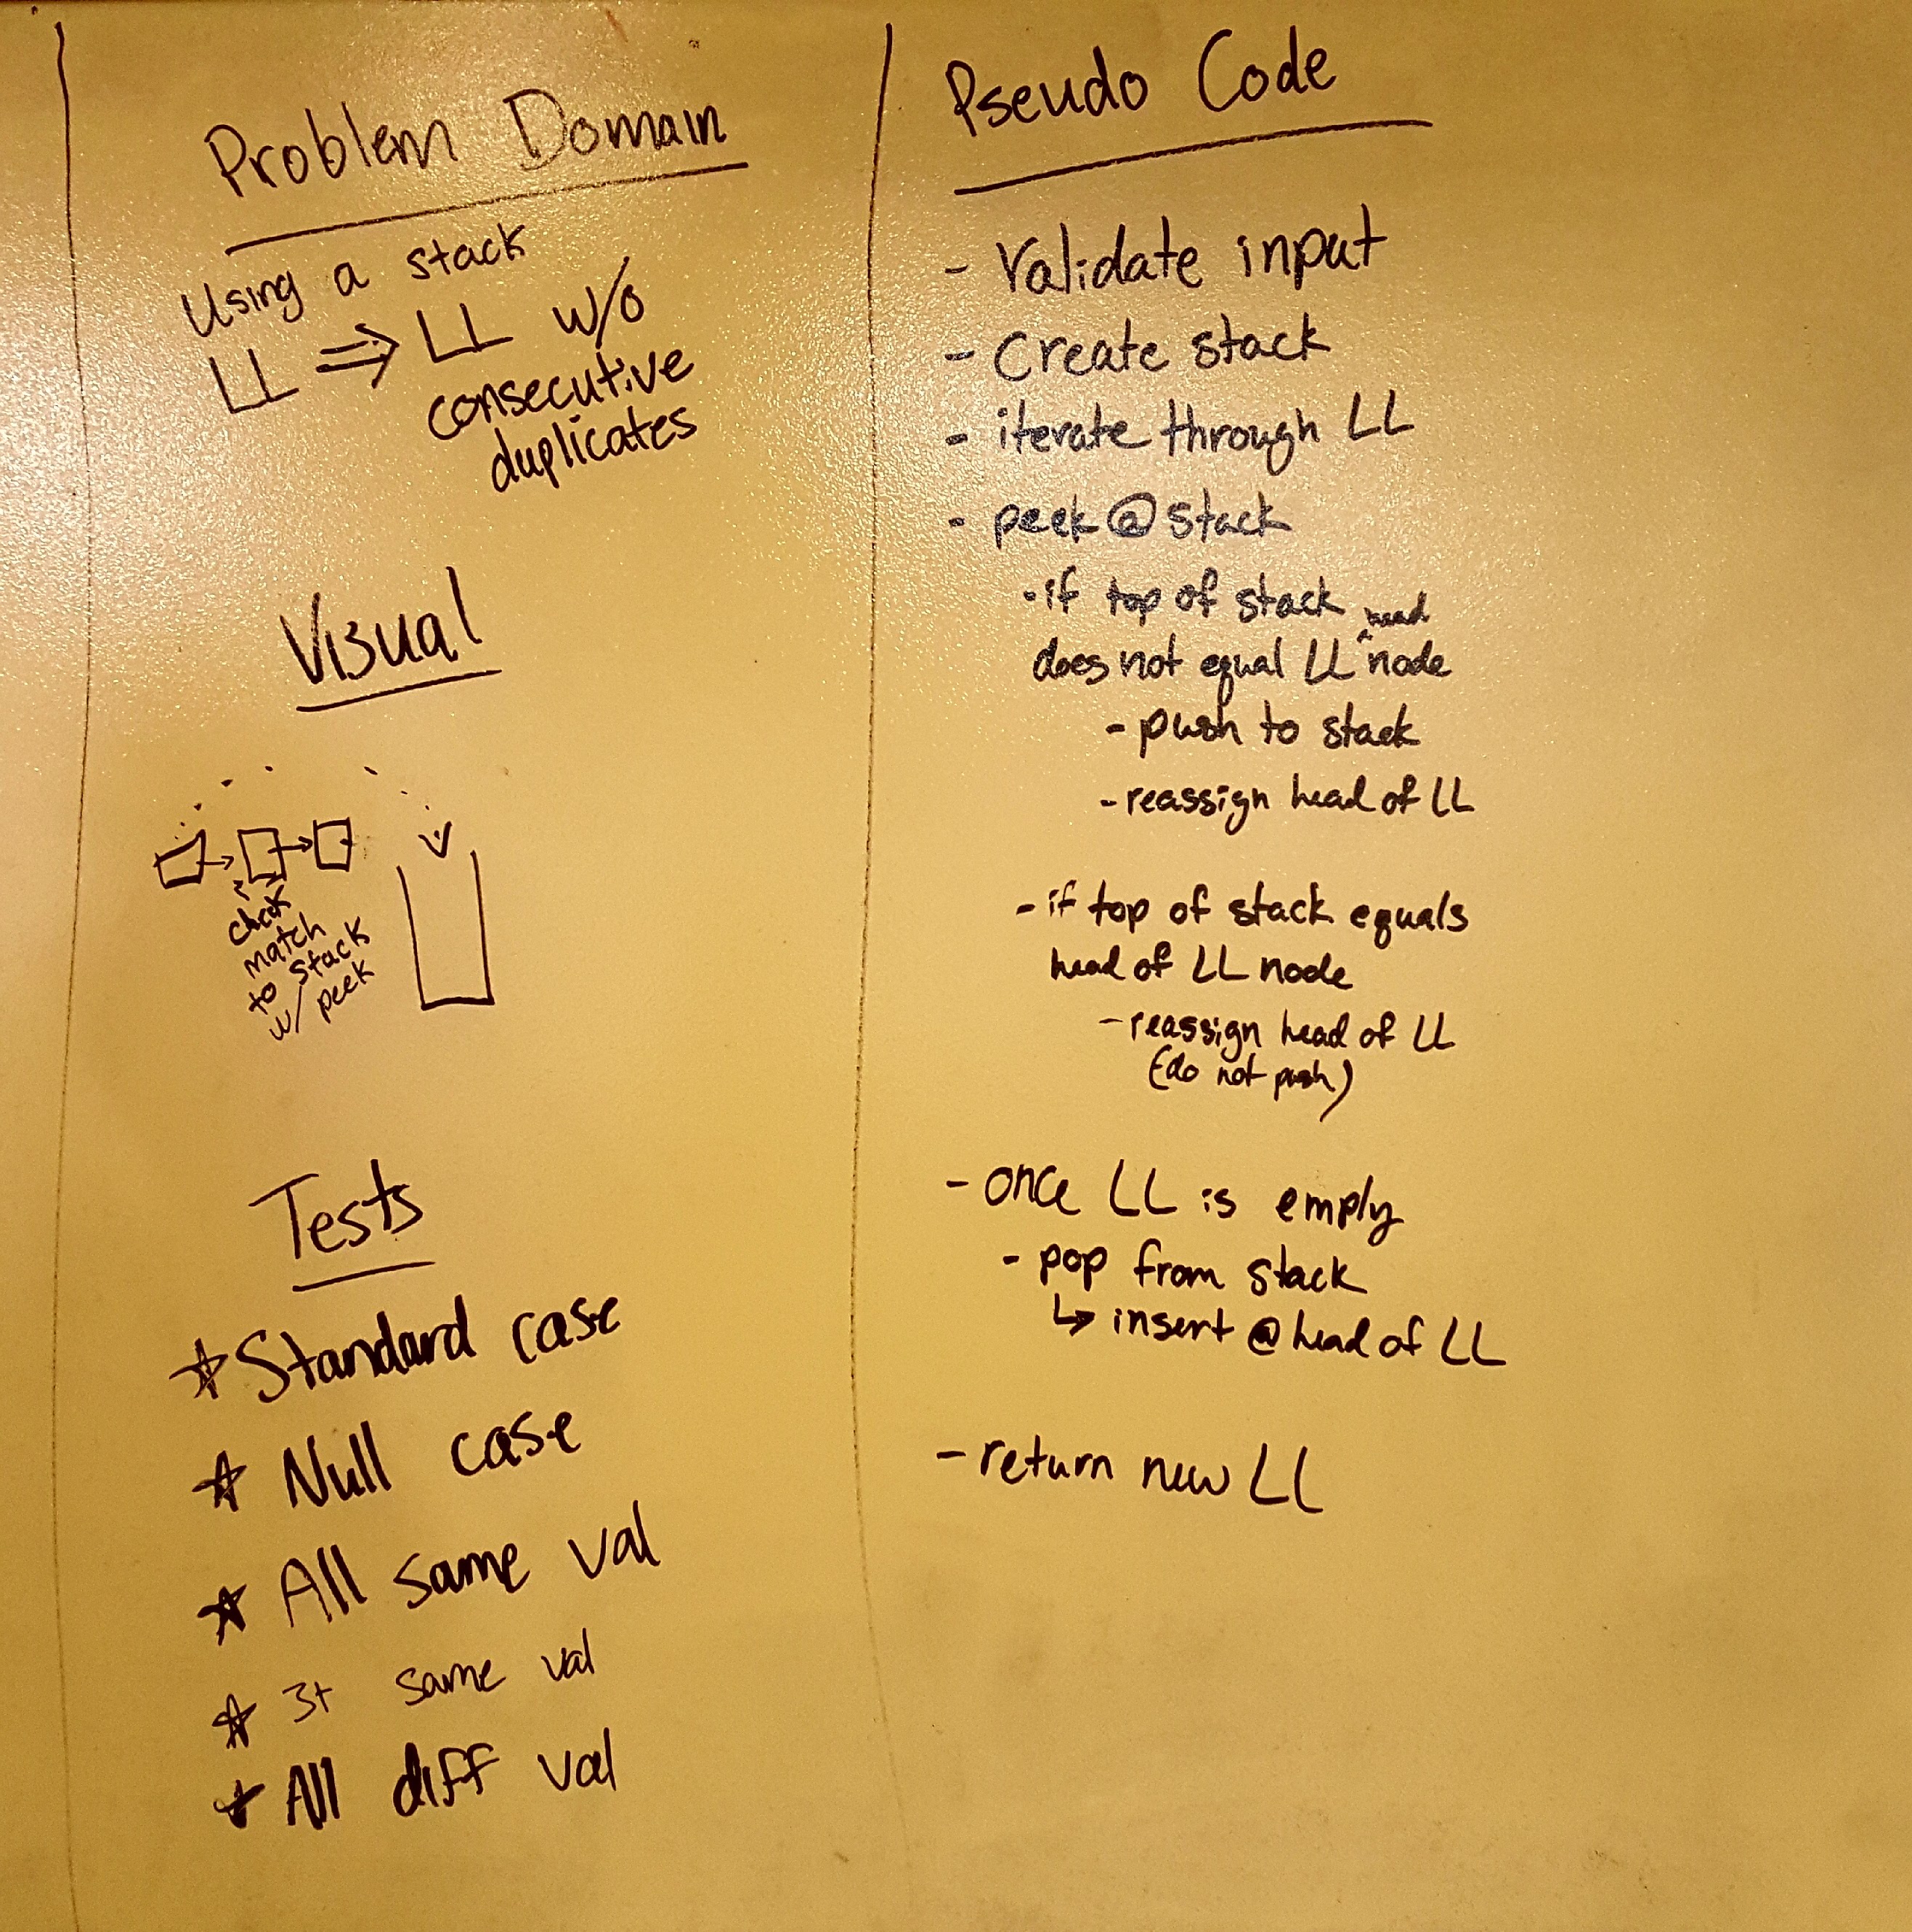 Problem Domain
Using a stack
LL ⇒ LL w/o
consecutive
duplicates
Visual
check
match
to stack
w/ peek
Tests
☆ Standard case
☆ Null case
☆ All same val
☆ 3+ same val
☆ All diff val
Pseudo Code
- Validate input
- Create stack
- iterate through LL
- peek @ stack
- if top of stack
does not equal LL ^head node
- push to stack
- reassign head of LL
- if top of stack equals
head of LL node
- reassign head of LL
(do not push)
- once LL is emply
- pop from stack
↳ insert @ head of LL
- return new LL